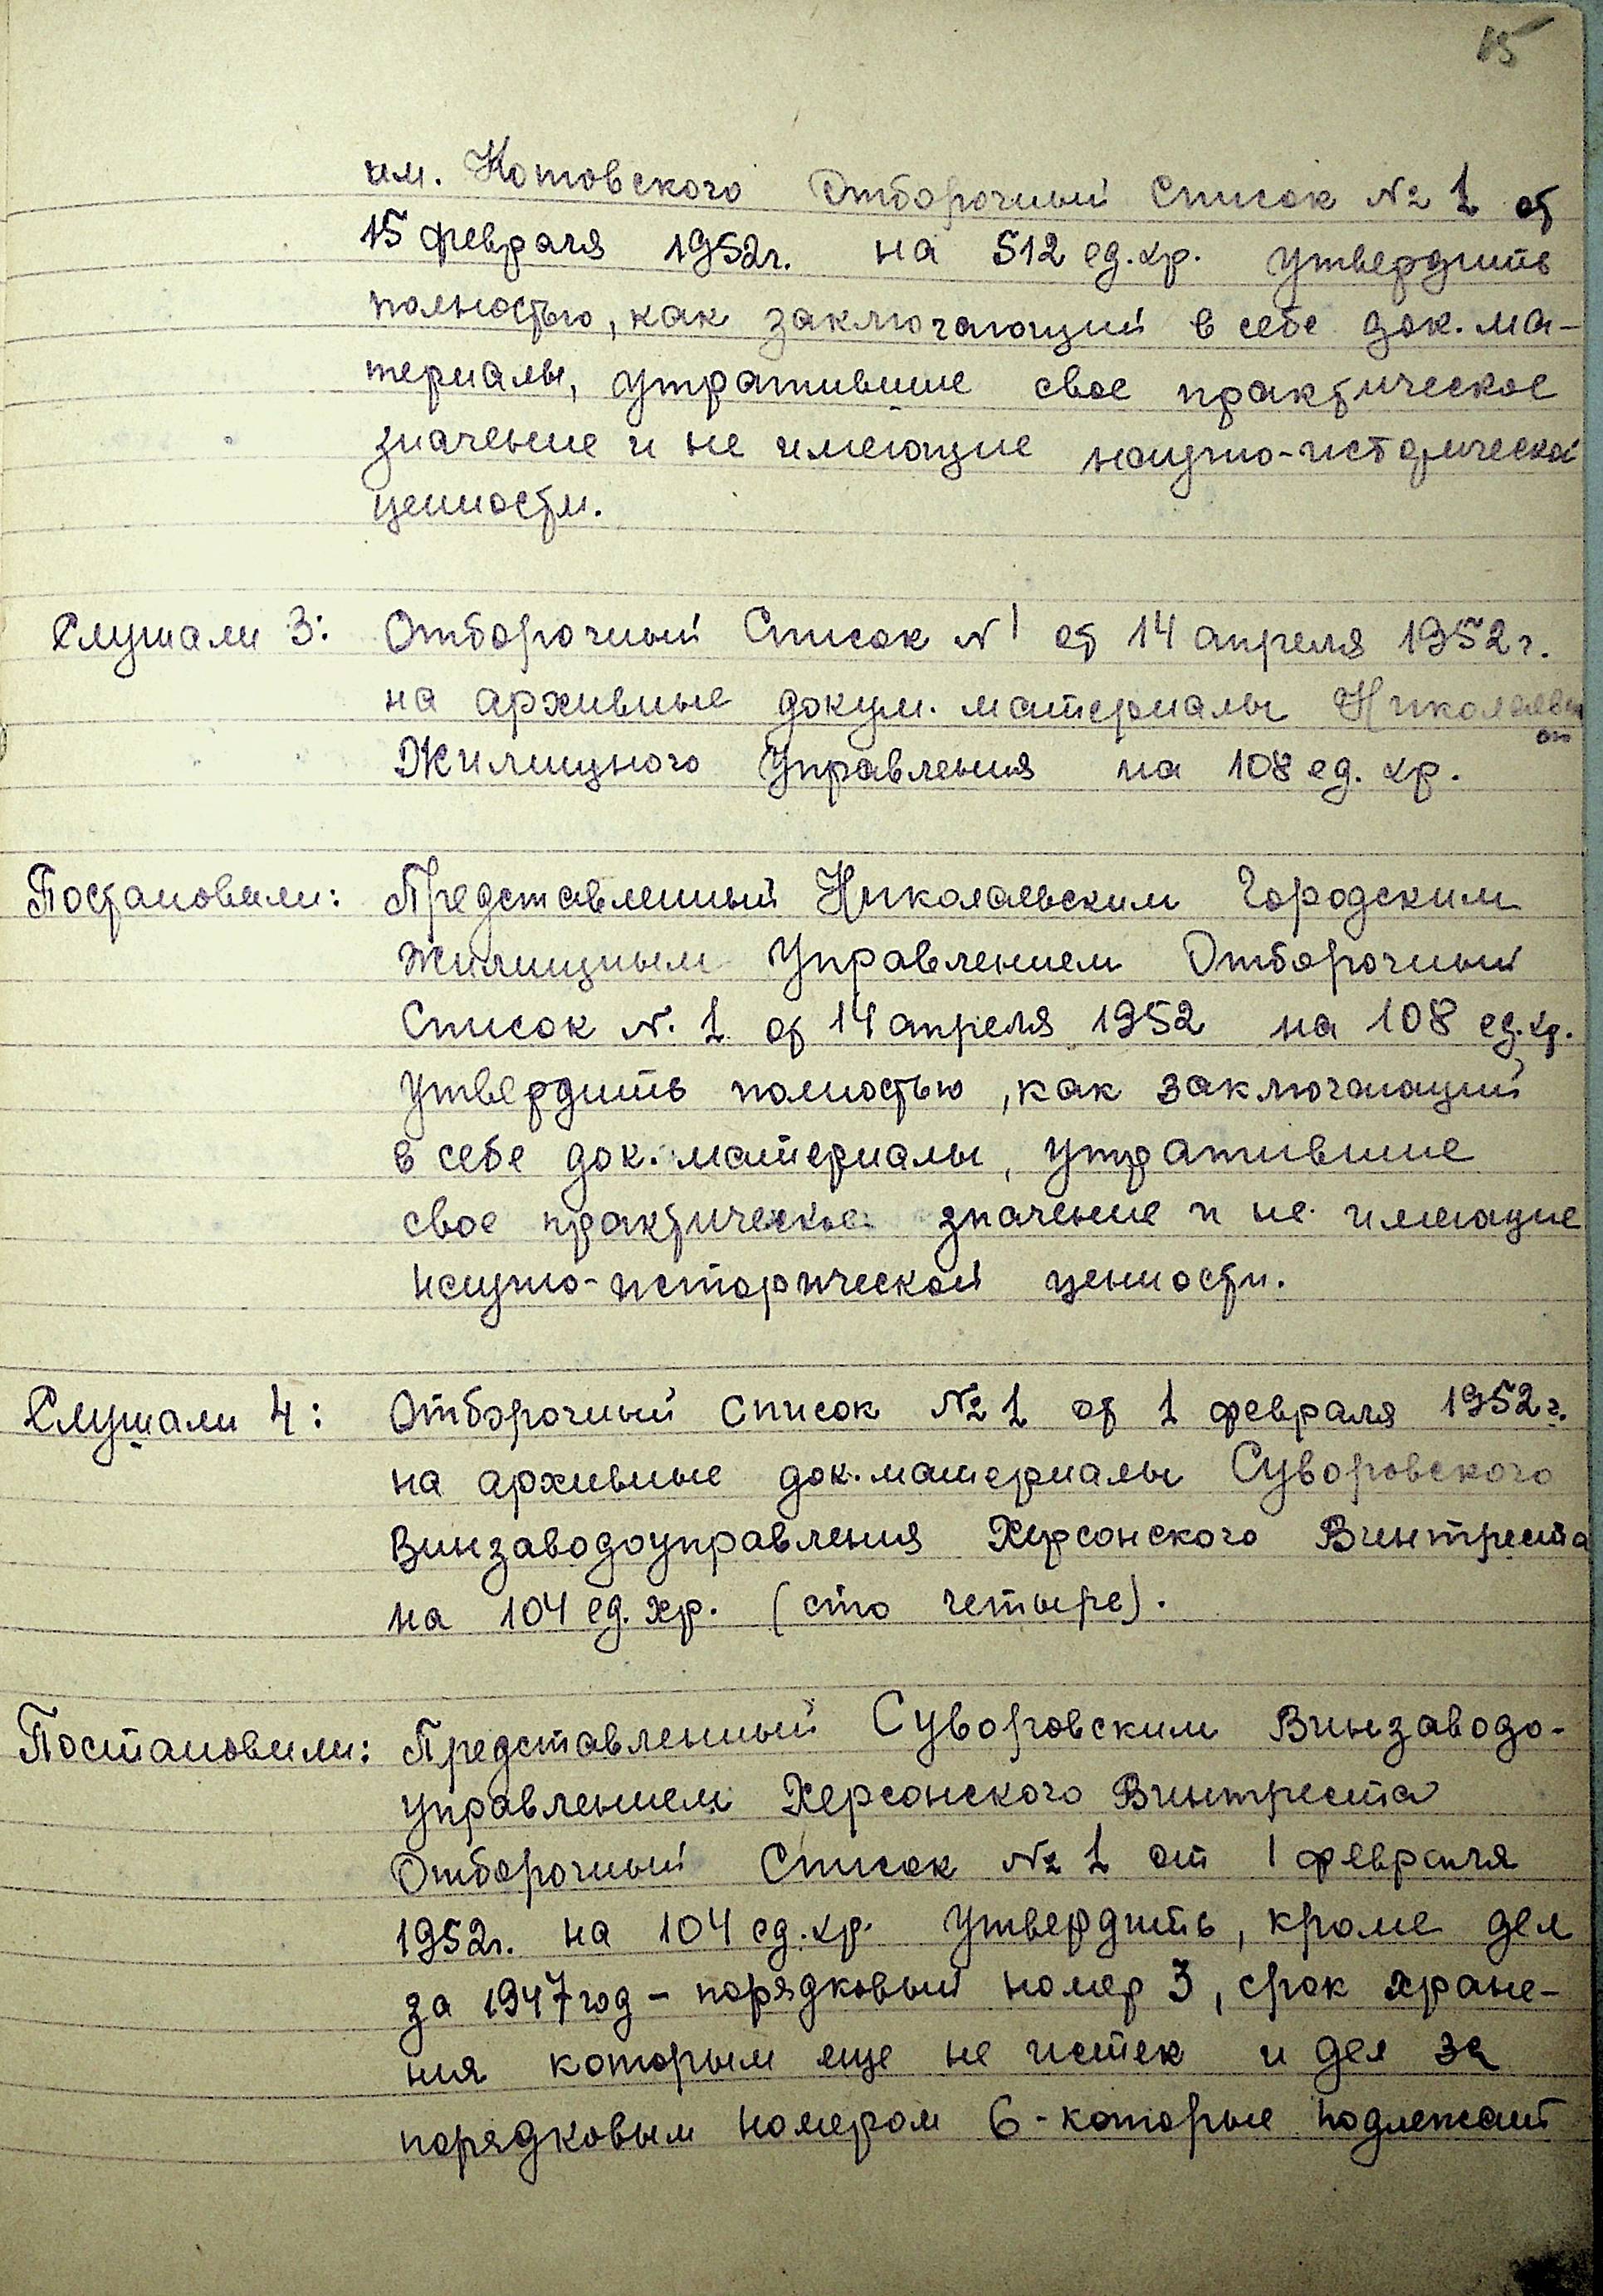 15
им. Котовского Отборочный Список № 1 от
15 февраля 1952г. на 512 ед.хр. утвердить
полностью, как заключающий в себе док. ма-
териалы, утратившие свое практическое
значение и не имеющие научно-исторической
ценности.
Слушали 3: Отборочный Список N 1 от 14 апреля 1952 г.
на архивные докум. материалы Николаевск
ого
Жилищного Управления на 108 ед. хр.
Постановили: Представленный Николаевским Городским
Жилищным Управлением Отборочный
Список N. 1 от 14 апреля 1952 на 108 ед.хр.
утвердить полностью, как заключающий
в себе док. материалы, утратившие
свое практическое значение и не имеющие
научно-исторической ценности.
Слушали 4: Отборочный список № 1 от 1 февраля 1952 г.
на архивные док. материалы Суворовского
Винзаводоуправления Херсонского Винтреста
на 104 ед. хр. (сто четыре).
Постановили: Представленный Суворовским Винзаводо-
управлением Херсонского Винтреста
Отборочный Список № 1 от 1 февраля
1952г. на 104 ед.хр. утвердить, кроме дел
за 1947 год – порядковый номер 3, срок хране-
ния которым еще не истек и дел за
порядковым номером 6 - которые подлежат